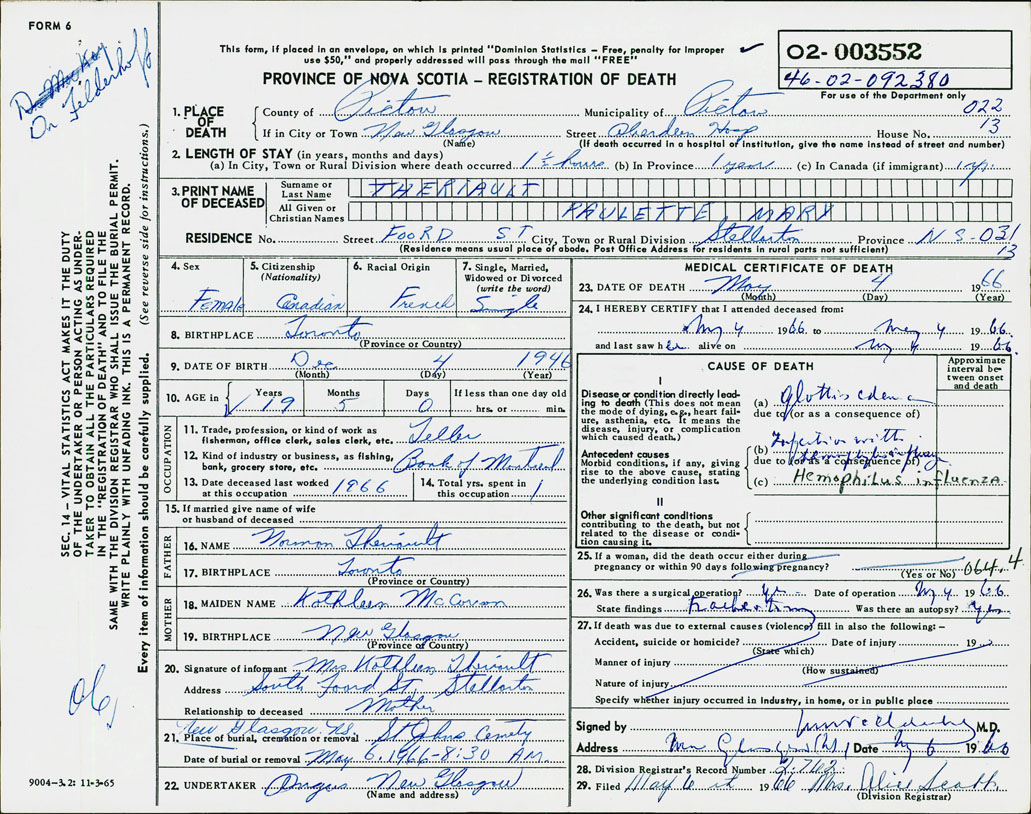 FORM 6
Dr. MacKay
Dr. Felderhof
This form, if placed in an envelope, on which is printed "Dominion Statistics – Free, penalty for improper
use $50," and properly addressed will pass through the mail "FREE"
PROVINCE OF NOVA SCOTIA – REGISTRATION OF DEATH
02-003552
46-02-092380
For use of the Department only
022
13
1. PLACE OF DEATH
County of Pictou Municipality of Pictou
If in City or Town New Glasgow Street Aberdeen Hosp House No.
(Name) (If death occurred in a hospital of institution, give the name instead of street and number)
2. LENGTH OF STAY (in years, months and days)
(a) In City, Town or Rural Division where death occurred 1½ hours (b) In Province 1 year (c) In Canada (if immigrant)
3. PRINT NAME OF DECEASED
Surname or Last Name THERIAULT
All Given or Christian Names PAULETTE MARY
RESIDENCE No. Street FOORD ST City, Town or Rural Division Stellarton Province N S-031
(Residence means usual place of abode. Post Office Address for residents in rural parts not sufficient) 13
4. Sex Female
5. Citizenship (Nationality) Canadian
6. Racial Origin French
7. Single, Married, Widowed or Divorced (write the word) Single
8. BIRTHPLACE Toronto
(Province or Country)
9. DATE OF BIRTH Dec 4 1946
(Month) (Day) (Year)
10. AGE in Years 19 Months 5 Days 0 If less than one day old
hrs. or min.
OCCUPATION
11. Trade, profession, or kind of work as fisherman, office clerk, sales clerk, etc. Teller
12. Kind of industry or business, as fishing, bank, grocery store, etc. Bank of Montreal
13. Date deceased last worked at this occupation 1966
14. Total yrs. spent in this occupation 1
15. If married give name of wife or husband of deceased
FATHER
16. NAME Norman Theriault
17. BIRTHPLACE Toronto
(Province or Country)
MOTHER
18. MAIDEN NAME Kathleen
19. BIRTHPLACE New Glasgow
(Province or Country)
20. Signature of informant Mrs Kathleen Theriault
Address South Foord St, Stellarton
Relationship to deceased Mother
New Glasgow N.S.
21. Place of burial, cremation or removal St Johns Cemety
Date of burial or removal May 6, 1966 - 8:30 AM.
22. UNDERTAKER Angus New Glasgow
(Name and address)
MEDICAL CERTIFICATE OF DEATH
23. DATE OF DEATH May 4 1966
(Month) (Day) (Year)
24. I HEREBY CERTIFY that I attended deceased from:
May 4 1966 to May 4 1966
and last saw her alive on May 4 1966.
CAUSE OF DEATH
Approximate interval between onset and death
I
Disease or condition directly leading to death (This does not mean the mode of dying, e.g., heart failure, asthenia, etc. It means the disease, injury, or complication which caused death.)
(a) Glottis edema
due to (or as a consequence of)
Antecedent causes
Morbid conditions, if any, giving rise to the above cause, stating the underlying condition last.
(b) Infection with
due to (or as a consequence of)
(c) Hemophilus influenza
II
Other significant conditions
contributing to the death, but not related to the disease or condition causing it.
25. If a woman, did the death occur either during pregnancy or within 90 days following pregnancy? (Yes or No) 064.4
26. Was there a surgical operation? Yes Date of operation May 4 1966
State findings Was there an autopsy? Yes
27. If death was due to external causes (violence) fill in also the following: –
Accident, suicide or homicide? Date of injury 19
(State which)
Manner of injury
(How sustained)
Nature of injury
Specify whether injury occurred in industry, in home, or in public place
Signed by M.D.
Address New Glasgow N.S. Date May 6 1966
28. Division Registrar's Record Number 2762
29. Filed May 6 1966 Mrs. Alice Scott.
(Division Registrar)
SEC. 14 – VITAL STATISTICS ACT MAKES IT THE DUTY
OF THE UNDERTAKER OR PERSON ACTING AS UNDER-
TAKER TO OBTAIN ALL THE PARTICULARS REQUIRED
IN THE "REGISTRATION OF DEATH" AND TO FILE THE
SAME WITH THE DIVISION REGISTRAR WHO SHALL ISSUE THE BURIAL PERMIT.
WRITE PLAINLY WITH UNFADING INK. THIS IS A PERMANENT RECORD.
Every item of information should be carefully supplied. (See reverse side for instructions.)
06
9004-3.2: 11-3-65